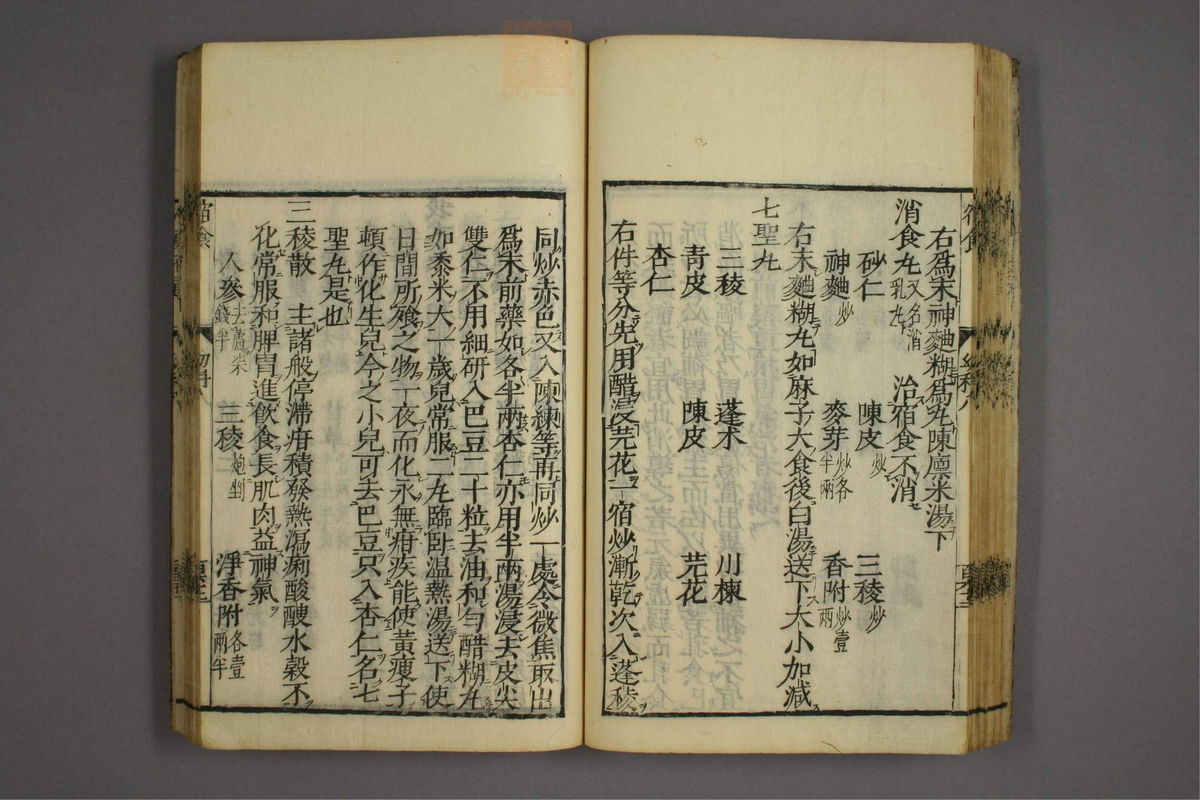 右爲末神麯糊爲丸陳廩米湯下
消食丸又名消乳丸 治宿食不消
砂仁 陳皮炒 三稜炒
神麯炒 麥芽炒各半兩 香附炒壹兩
右末麯糊丸如麻子大食後白湯送下大小加減
七聖丸
三稜 蓬术 川楝
青皮 陳皮 芫花
杏仁
右件等分先用醋浸芫花一宿炒漸乾次入蓬稜
同炒赤色又入陳練等再同炒一處令微焦取出
爲末前藥如各半兩杏仁亦用半兩湯浸去皮尖
雙仁不用細研入巴豆二十粒去油和勻醋糊丸
如黍米大一歲兒常服二丸臨臥温熱湯送下使
日間所飡之物一夜而化永無疳疾能使黃瘦子
頓作化生兒今之小兒可去巴豆只入杏仁名七
聖丸是也
三稜散 主諸般停滯疳積發熱瀉痢酸䤃水穀不
化常服和脾胃進飲食長肌肉益神氣
人參去蘆柒錢半 三稜炮剉 淨香附各壹兩半
宿食